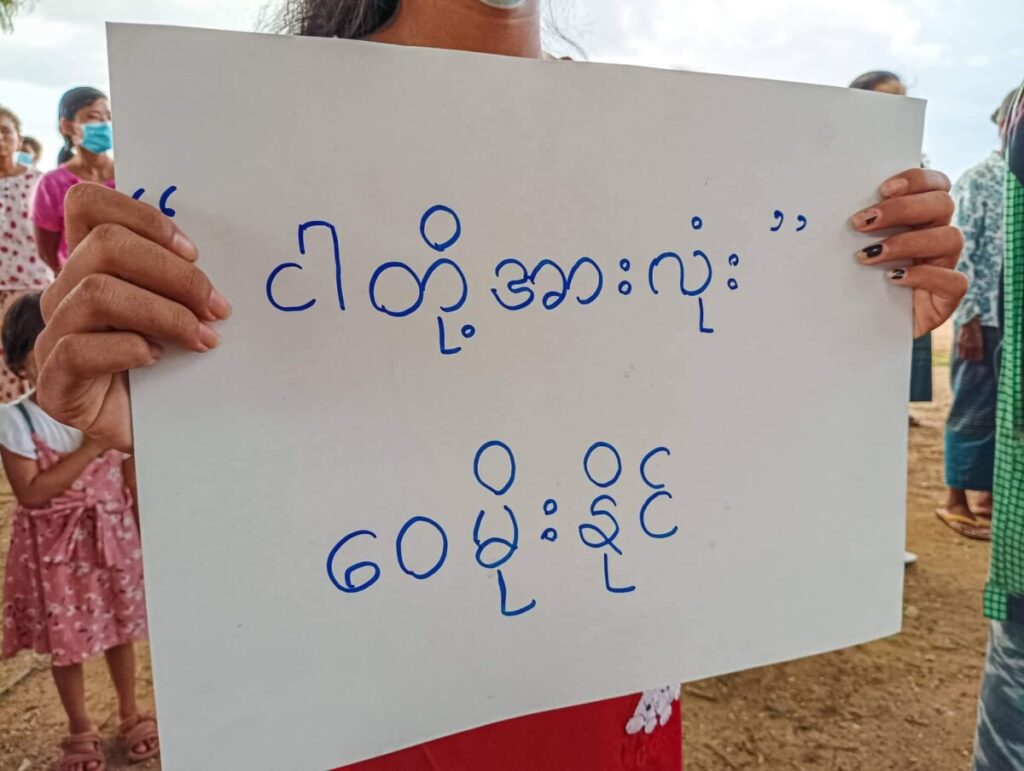 “ ငါတို့အားလုံး ”
ဝေမိုးနိုင်